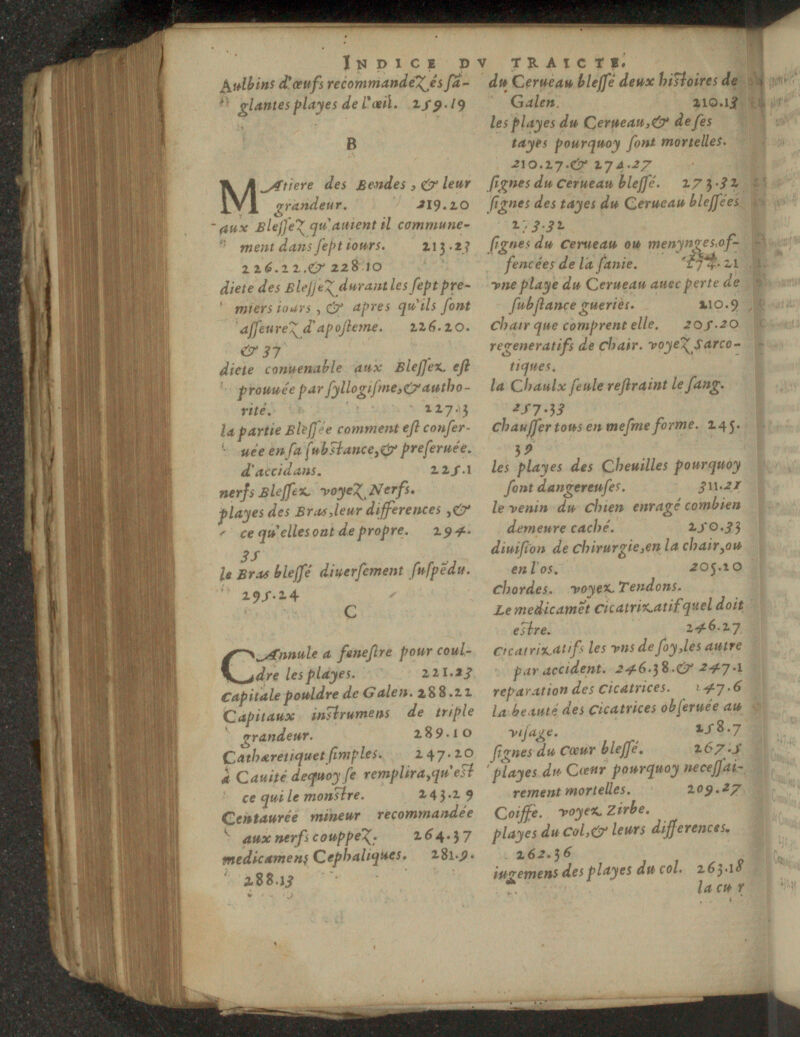 INDICE DV TRAICTE.
Aulbins d'œufs recommandeZ és sã-
glantes playes de l'œil. 259.19
B
MAtiere des Bendes, & leur
grandeur. 219.20
aux BlesseZ qu'auient il commune-
ment dans sept iours. 213.23
226.22.& 228.10
diete des BlesseZ durant les sept pre-
miers iours, & apres qu'ils sont
asseureZ d'aposteme. 226.20.
& 37
diete conuenable aux Blessez est
prouuée par syllogisme, & autho-
rité. 227.3
la partie Blessée comment est conser-
uée en sa substance, & preseruée.
d'accidans. 225.1
nerfs Blessez. voyeZ Nerfs.
playes des Bras, leur differences, &
ce qu'elles ont de propre. 294.
35
le Bras blessé diuersement suspēdu.
295.24
C
CAnnule a fenestre pour coul-
dre les playes. 221.23
Capitale pouldre de Galen. 288.22
Capitaux instrumens de triple
grandeur. 289.10
Cathæretiques simples. 247.20
à Cauité dequoy se remplira, qu'est
ce qui le monstre. 243.29
Centaurée mineur recommandée
aux nerfs couppeZ. 264.37
medicamens Cephaliques. 281.9.
288.13
du Cerueau blessé deux histoires de
Galen. 210.13
les playes du Cerueau, & de ses
tayes pourquoy sont mortelles.
210.27.& 274.27
signes du cerueau blessé. 273.32
signes des tayes du Cerueau blessées
273.32
signes du Cerueau ou menynges of-
fencées de la sanie. 274.21
vne playe du Cerueau auec perte de
substance gueriës. 210.9
chair que comprent elle. 205.20
regeneratifs de chair. voyeZ Sarco-
tiques.
la Chaulx seule restraint le sang.
257.33
chauffer tous en mesme forme. 245.
39
les playes des Cheuilles pourquoy
sont dangereuses. 311.21
le venin du chien enragé combien
demeure caché. 250.33
diuision de chirurgie, en la chair, ou
en l'os. 205.10
chordes. voyez Tendons.
Le medicamēt cicatrizatif quel doit
estre. 246.27
Cicatrizatifs les vns de soy, les autre
par accident. 246.38.& 247.1
reparation des Cicatrices. 247.6
la beauté des Cicatrices obseruée au
visage. 258.7
signes du Cœur blessé. 267.5
playes du Cœur pourquoy necessai-
rement mortelles. 209.27
Coiffe. voyez Zirbe.
playes du Col, & leurs differences.
262.36
iugemens des playes du col. 263.18
la cu r